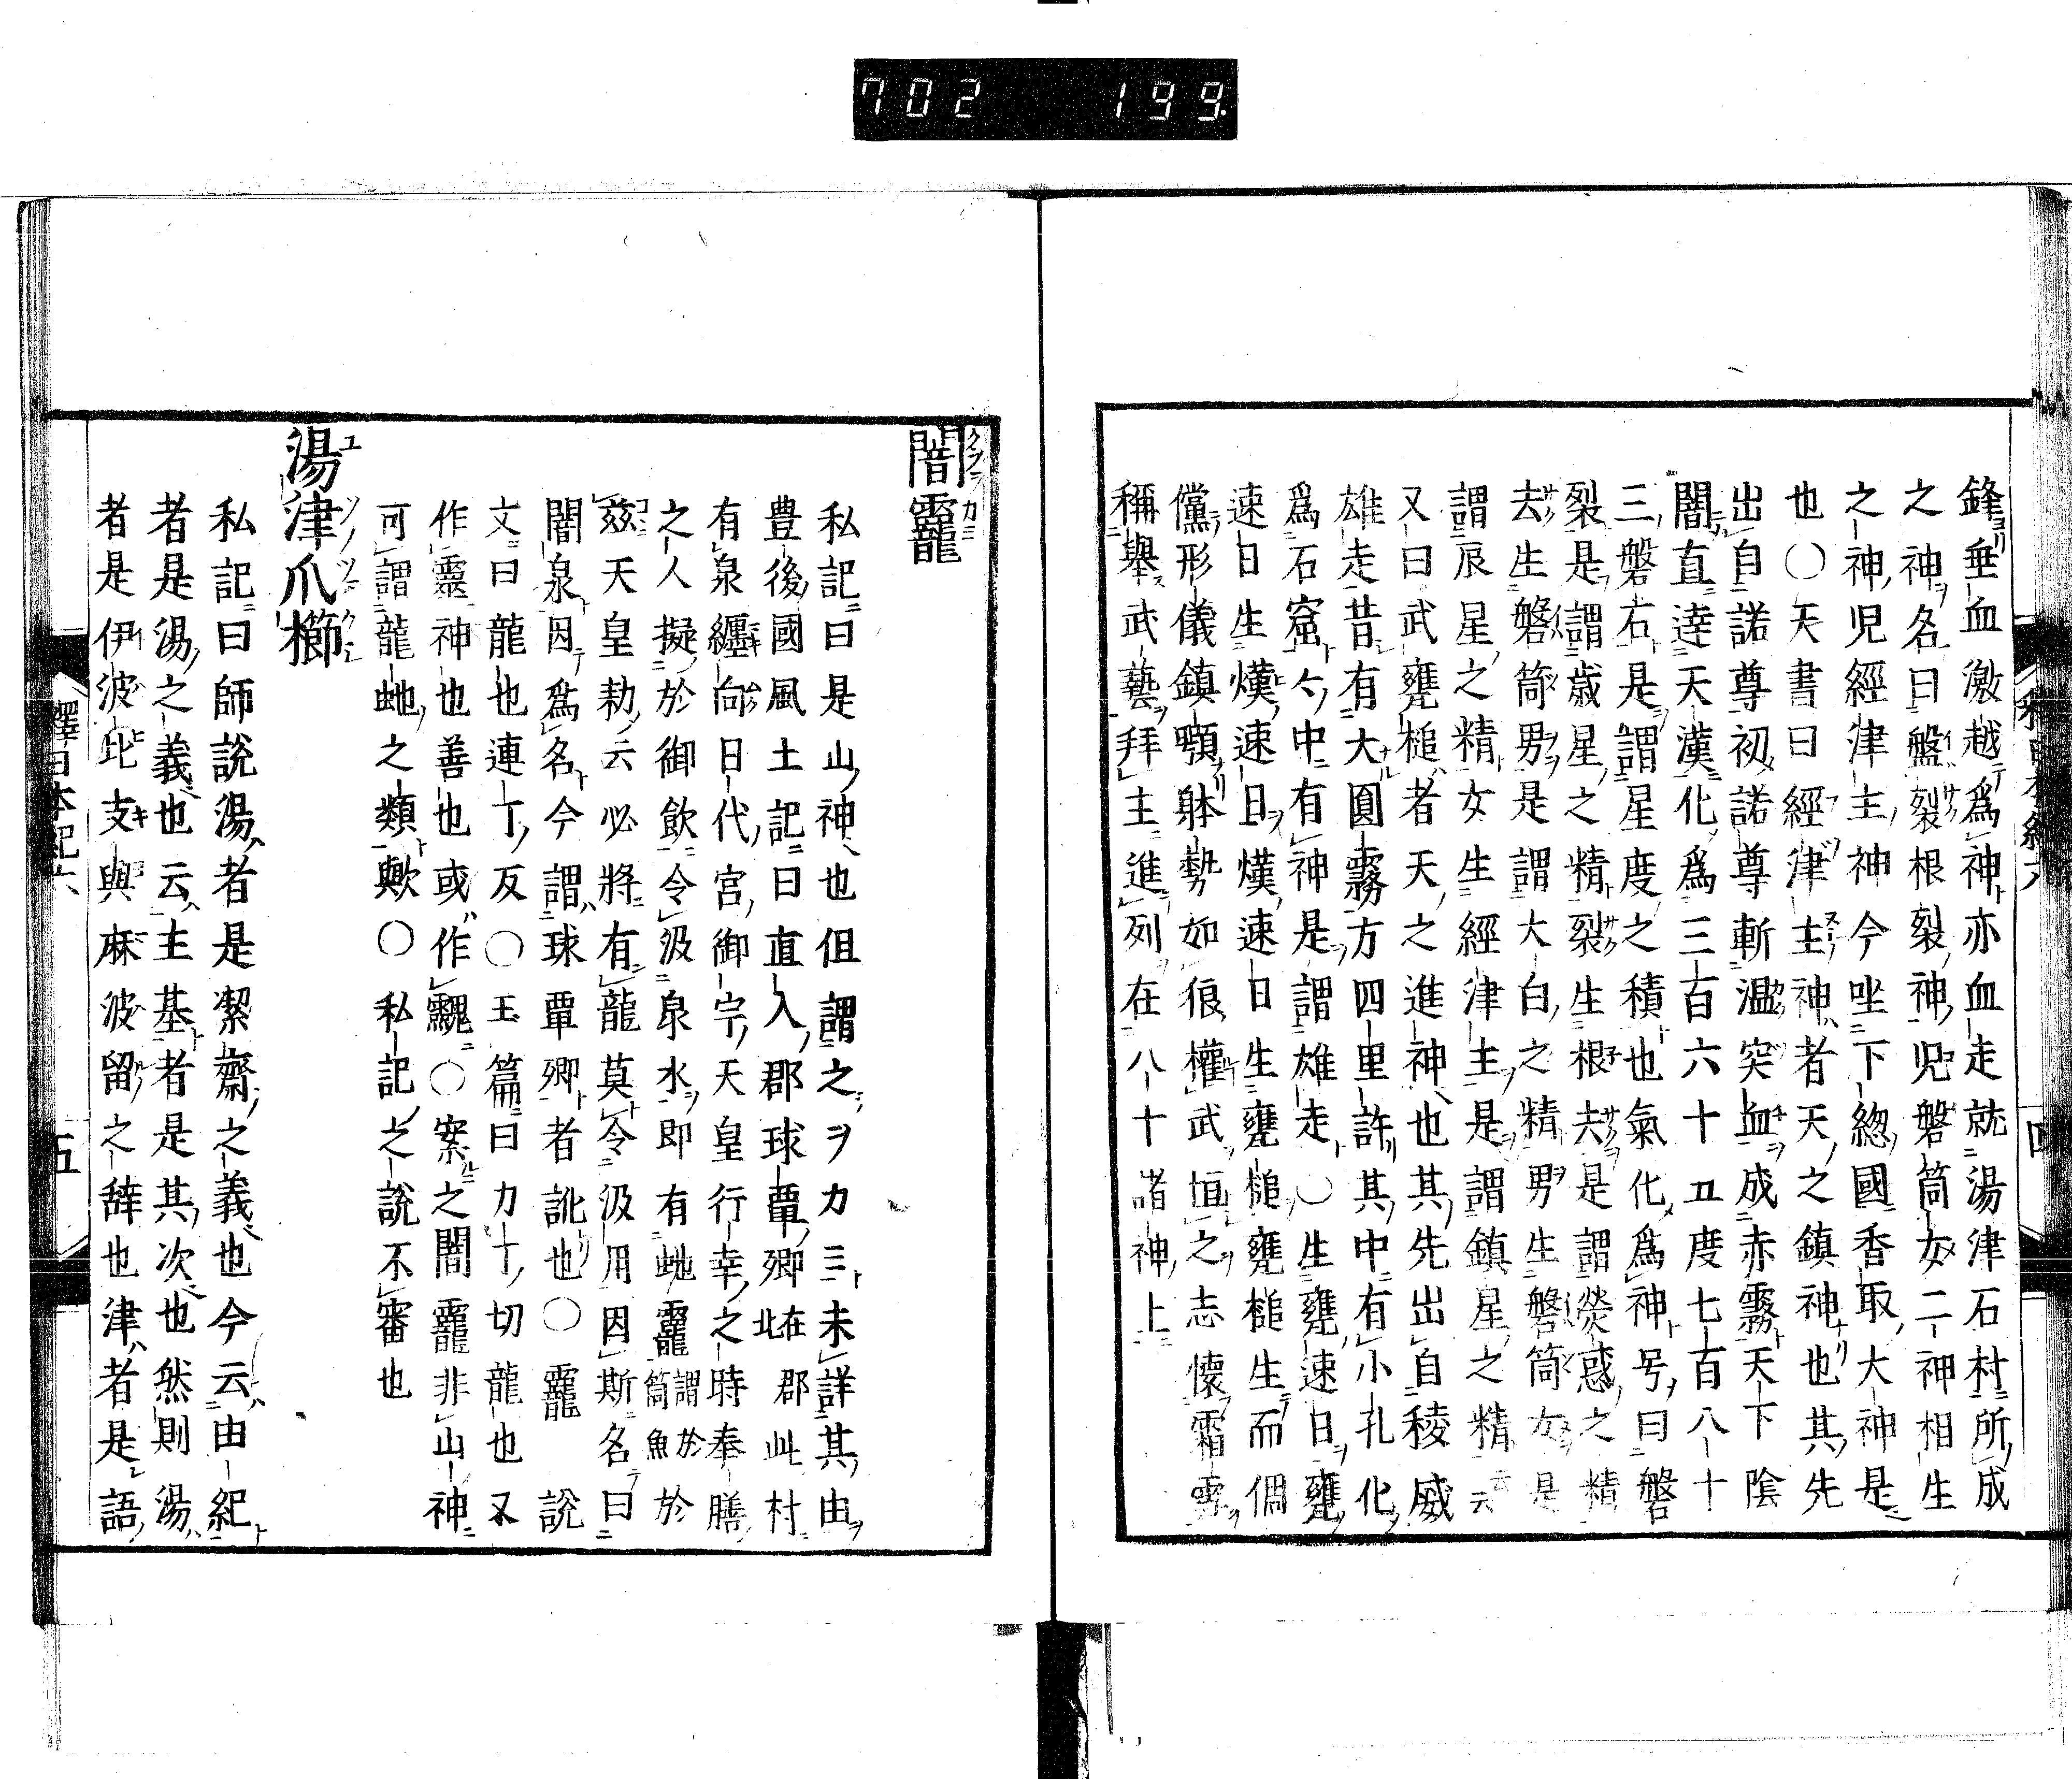 702 199
鋒垂血激越爲神亦血走就湯津石村所成
之神名曰盤裂根裂神児磐筒女二神相生
之神児經津主神今坐下緫國香取大神是
也〇天書曰經津主神者天之鎮神也其先
出自諾尊初諾尊斬温突血成赤霧天下陰
闇直達天漢化爲三百六十五度七百八十
三磐石是謂星度之積也氣化爲神号曰磐
裂是謂歳星之精裂生根去是謂熒惑之精
去生磐筒男是謂大白之精男生磐筒女是
謂辰星之精女生經津主是謂鎮星之精云
又曰武甕槌者天之進神也其先出自稜威
雄走昔有大圓霧方四里許其中有小孔化
爲石窟中有神是謂雄走〇生甕速日甕
速日生熯速日熯速日生甕槌甕槌生而倜
儻形儀鎮顎躰勢如狼權武恒之志懷霜雪
稱舉武藝拜主進列在八十諸神上
闇龗
私記曰是山神也但謂之ヲカミ未詳其由
豊後國風土記曰直入郡球覃郷在郡北此村
有泉纏向日代宮御宇天皇行幸之時奉膳
之人擬於御飲令汲泉水即有虵龗謂於箇魚於
玆天皇勅云必將有龍莫令汲用因斯名曰
闇泉因爲名今謂球覃郷者訛也〇龗說
文曰龍也連丁反〇玉篇曰力丁切龍也又
作靈神也善也或作𩆜〇案之闇龗非山神
可謂龍虵之類歟〇私記之說不審也
湯津爪櫛
私記曰師說湯者是潔齋之義也今云由紀
者是湯之義也云主基者是其次也然則湯
者是伊波比支與麻波留之辞也津者是語
釋日本紀六
五